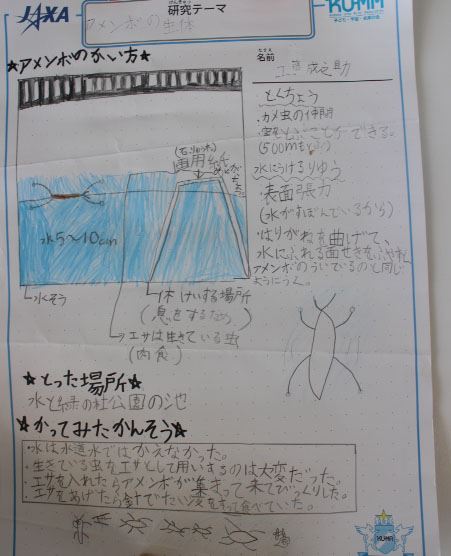 JAXA
けんきゅう
研究テーマ
アメンボの生体
KU-MA
子ども・宇宙・未来の会
★アメンボのかい方★
なまえ
名前
之助
とくちょう
・カメ虫の仲間
・空をとぶことができる。
(500mも
水にうけるりゆう
表面張力
(水が
・はりがねを曲げて、
水にふれる面せきをふやす。
アメンボのういているのと同じ
ようにうく。
画用紙
水5~10cm
水そう
休けいする場所
(息をするため)
エサは生きている虫
(肉食)
★とった場所★
水と緑の杜公園の池
★かってみたかんそう★
・水は水道水ではかえなかった。
・生きている虫をエサとして用いするのは大変だった。
・エサを入れたらアメンボが集まって来てびっくりした。
・エサをあげたら針でたい液をすって食べていた。
KU-MA